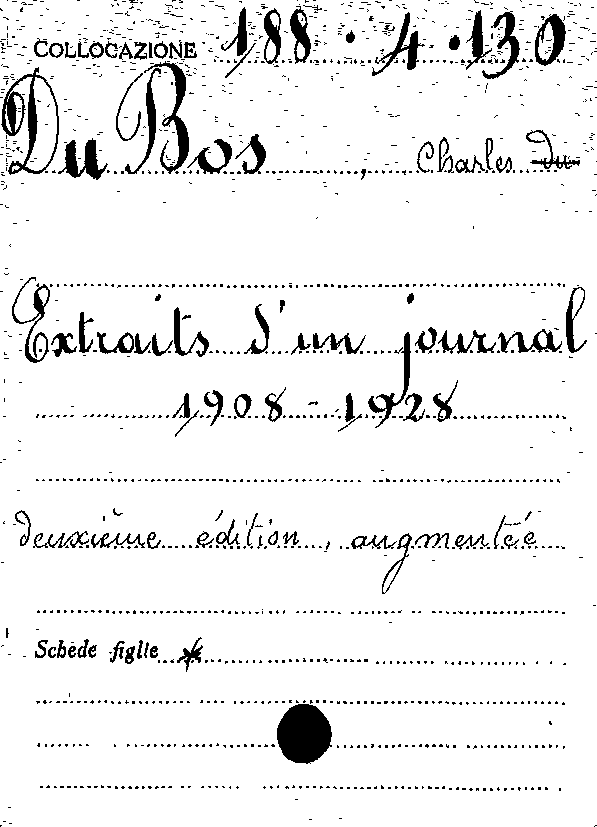 COLLOCAZIONE 188.4.130
Du Bos, Charles du
Extraits d'un journal
1908-1928
deuxième édition, augmentée
Schede figlie *